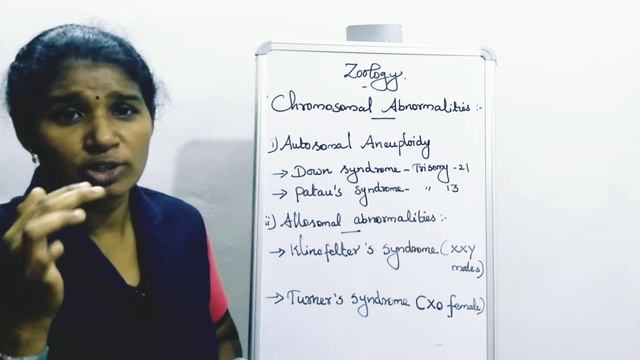 Zoology.
Chromosomal Abnormalities :-
i) Autosomal Aneuploidy
→ Down Syndrome - Trisomy - 21
→ Patau's Syndrome - " 13
ii) Allosomal abnormalities :-
→ Klinefelter's Syndrome (XXY
males)
→ Turner's Syndrome (XO female)